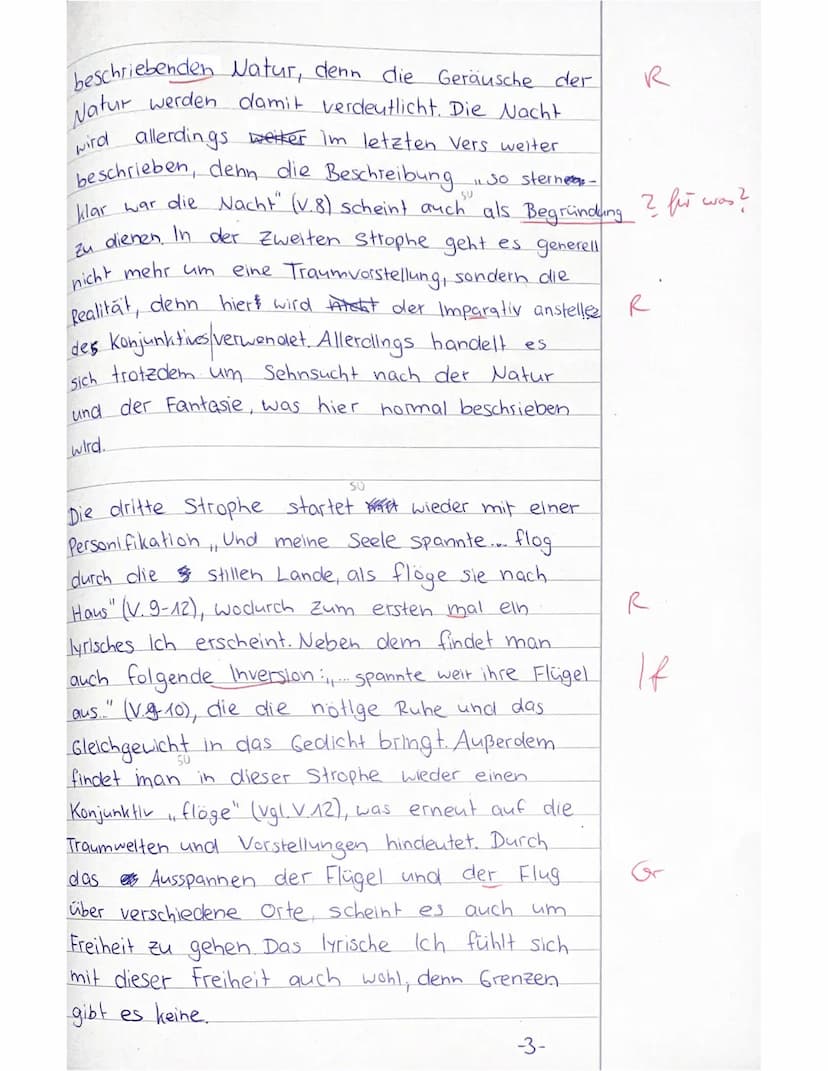 beschriebenden Natur, denn die Geräusche der R
Natur werden damit verdeutlicht. Die Nacht
wird allerdings weiter im letzten Vers weiter
beschrieben, denn die Beschreibung „so stern-
klar war die Nacht" (V.8) scheint auch als Begründung ? für was?
zu dienen. In der zweiten Strophe geht es generell
nicht mehr um eine Traumvorstellung, sondern die
Realität, denn hier wird nicht der Imparativ anstelle R
des Konjunktives verwendet. Allerdings handelt es
sich trotzdem um Sehnsucht nach der Natur
und der Fantasie, was hier normal beschrieben
wird.
Die dritte Strophe startet wieder mit einer
Personifikation „Und meine Seele spannte... flog
durch die stillen Lande, als flöge sie nach
Haus" (V. 9-12), wodurch zum ersten mal ein R
lyrisches Ich erscheint. Neben dem findet man
auch folgende Inversion: „... spannte weit ihre Flügel If
aus.." (V.9-10), die die nötige Ruhe und das
Gleichgewicht in das Gedicht bringt. Außerdem
findet man in dieser Strophe wieder einen
Konjunktiv „flöge" (vgl. V.12), was erneut auf die
Traumwelten und Vorstellungen hindeutet. Durch
das Ausspannen der Flügel und der Flug Gr
über verschiedene Orte, scheint es auch um
Freiheit zu gehen. Das lyrische Ich fühlt sich
mit dieser Freiheit auch wohl, denn Grenzen
gibt es keine.
-3-